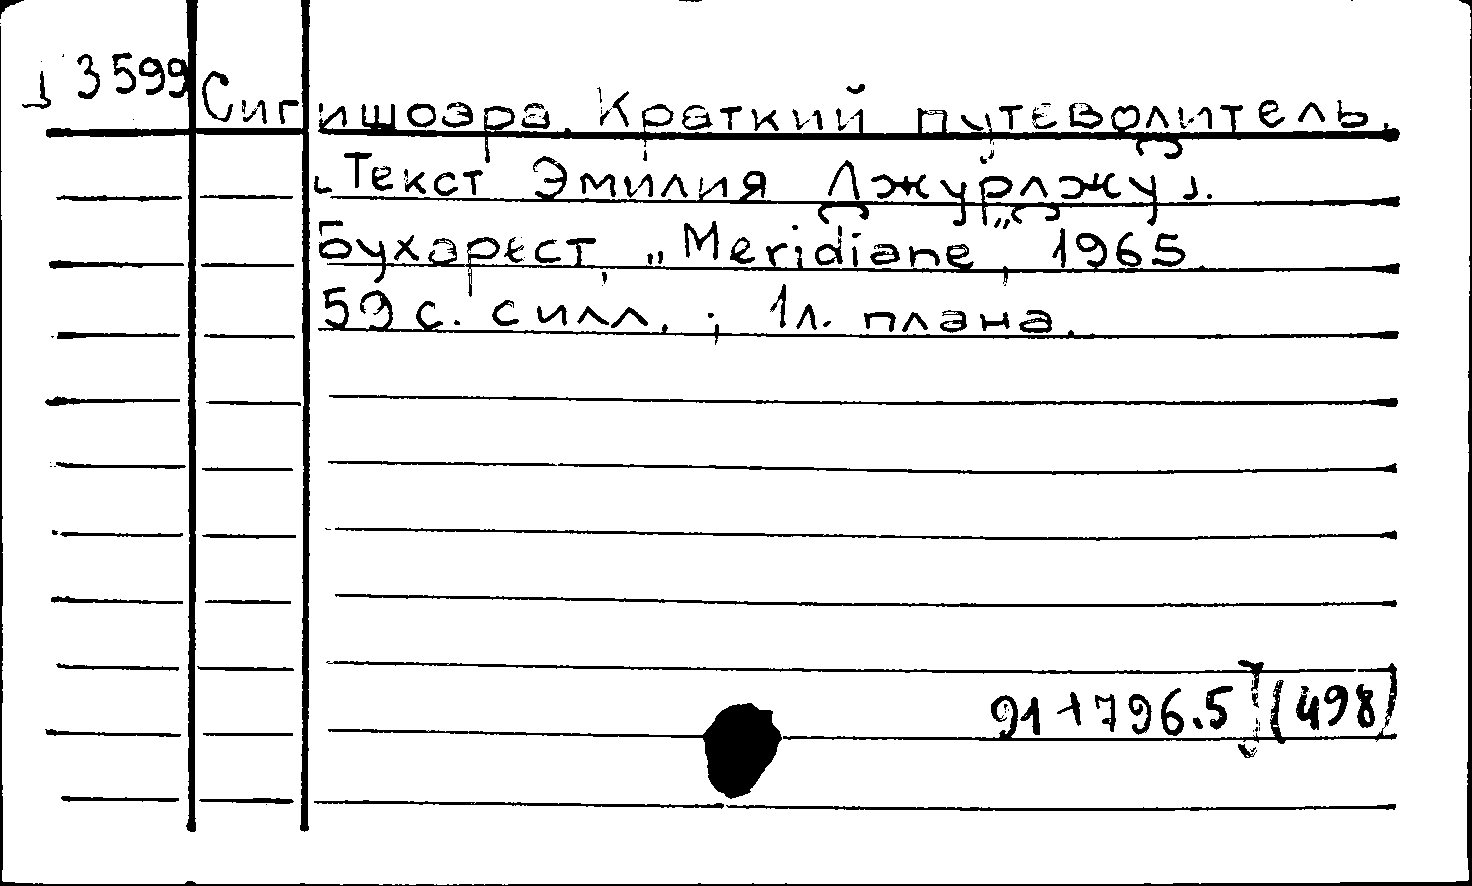 1 3599 Сигишоара. Краткий путеводитель.
[Текст Эмилия Джурджу].
Бухарест, „Meridiane”, 1965.
59 с. с илл. ; 1 л. плана.
91+796.5](498)